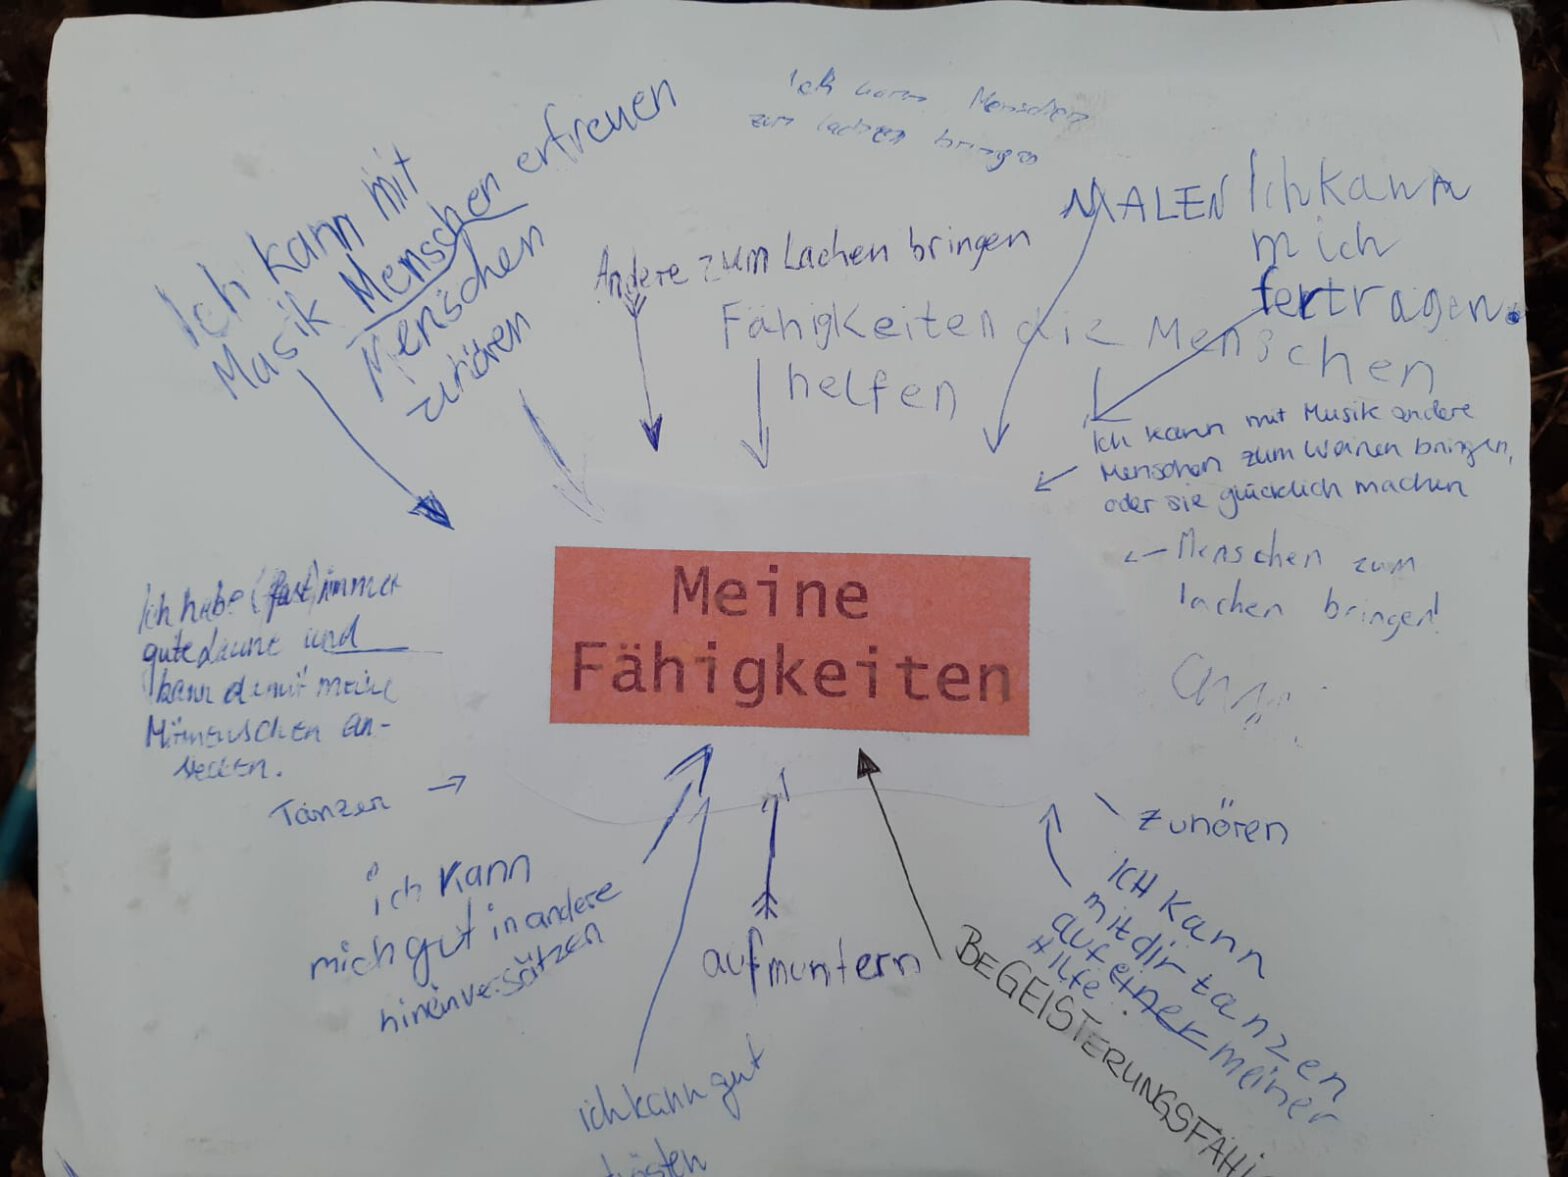 Ich kann Menschen
zum lachen bringen
Ich kann mit
Musik Menschen erfreuen
Menschen
zuhören
Andere zum Lachen bringen
MALEN
Ich kann
mich
fertragen.
Fähigkeiten die Menschen
helfen
Ich kann mit Musik andere
Menschen zum Weinen bringen,
oder sie glücklich machen
Menschen zum
lachen bringen!
Meine
Fähigkeiten
Ich habe (fast) immer
gute Laune und
kann damit meine
an-
stecken.
Tanzen
ich kann
mich gut in andere
hineinversätzen
ich kann gut
trösten
aufmuntern
BEGEISTERUNGSFÄHI
zuhören
ICH kann
mit dir tanzen
auf einer meiner
Hilfe